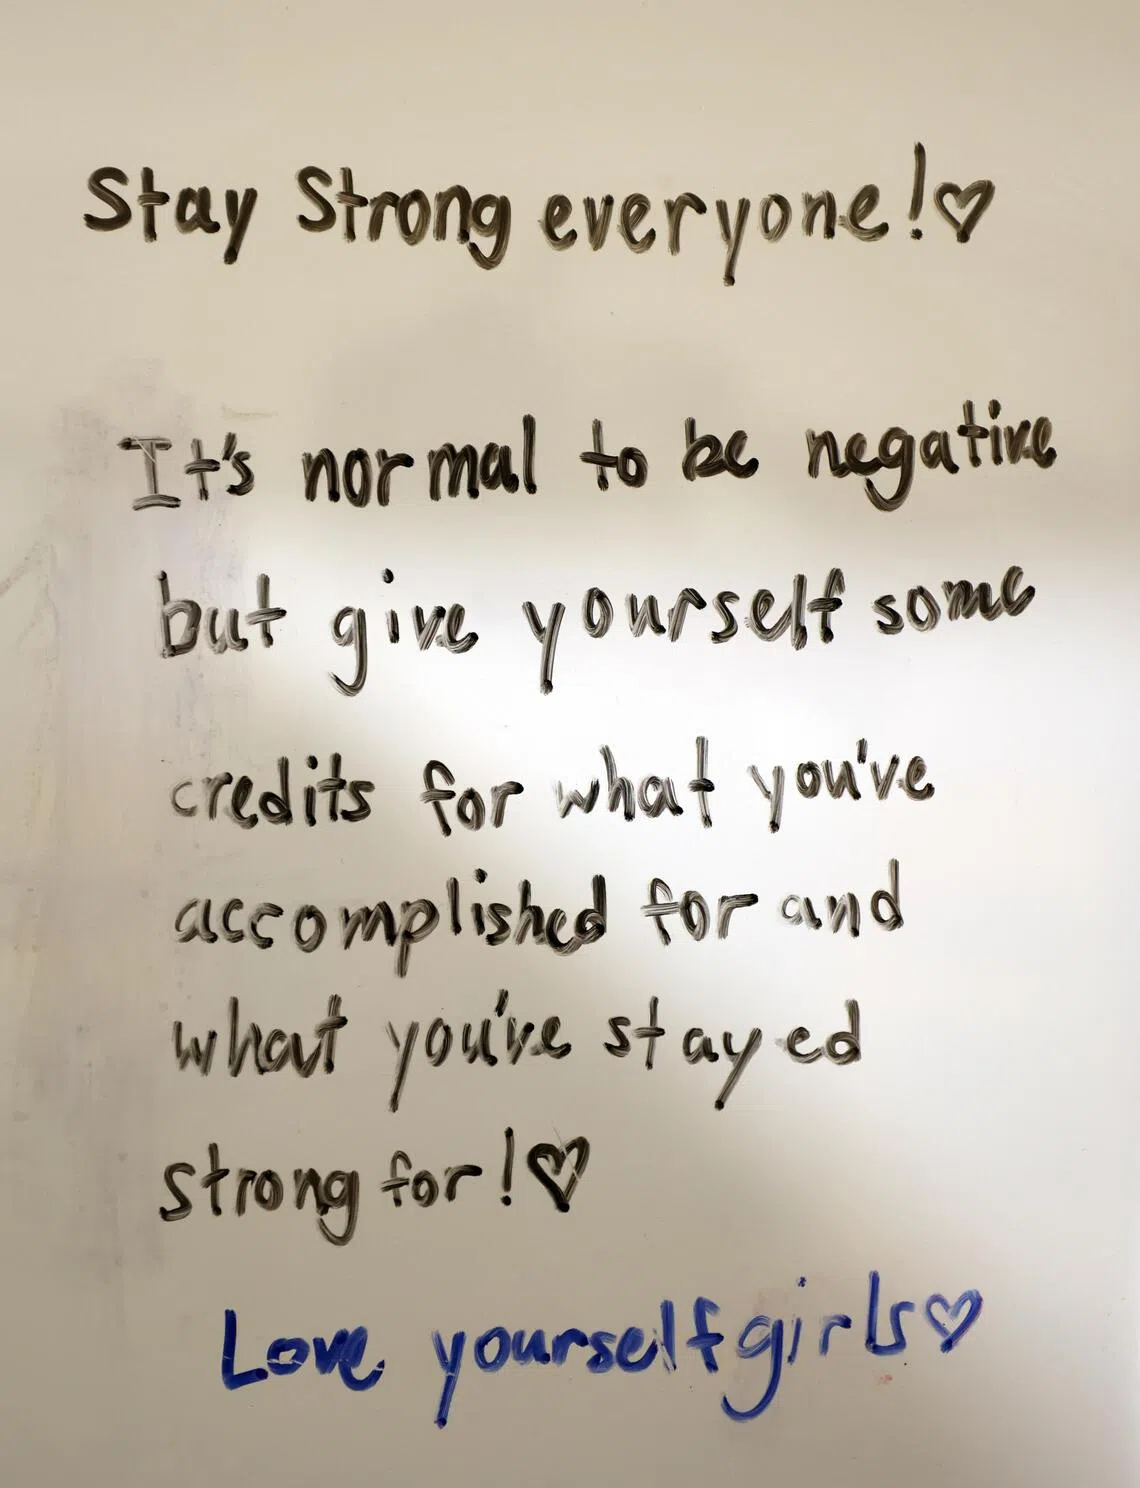 Stay Strong everyone!♡
It's normal to be negative
but give yourself some
credits for what you've
accomplished for and
what you've stayed
strong for!♡
Love yourself girls♡